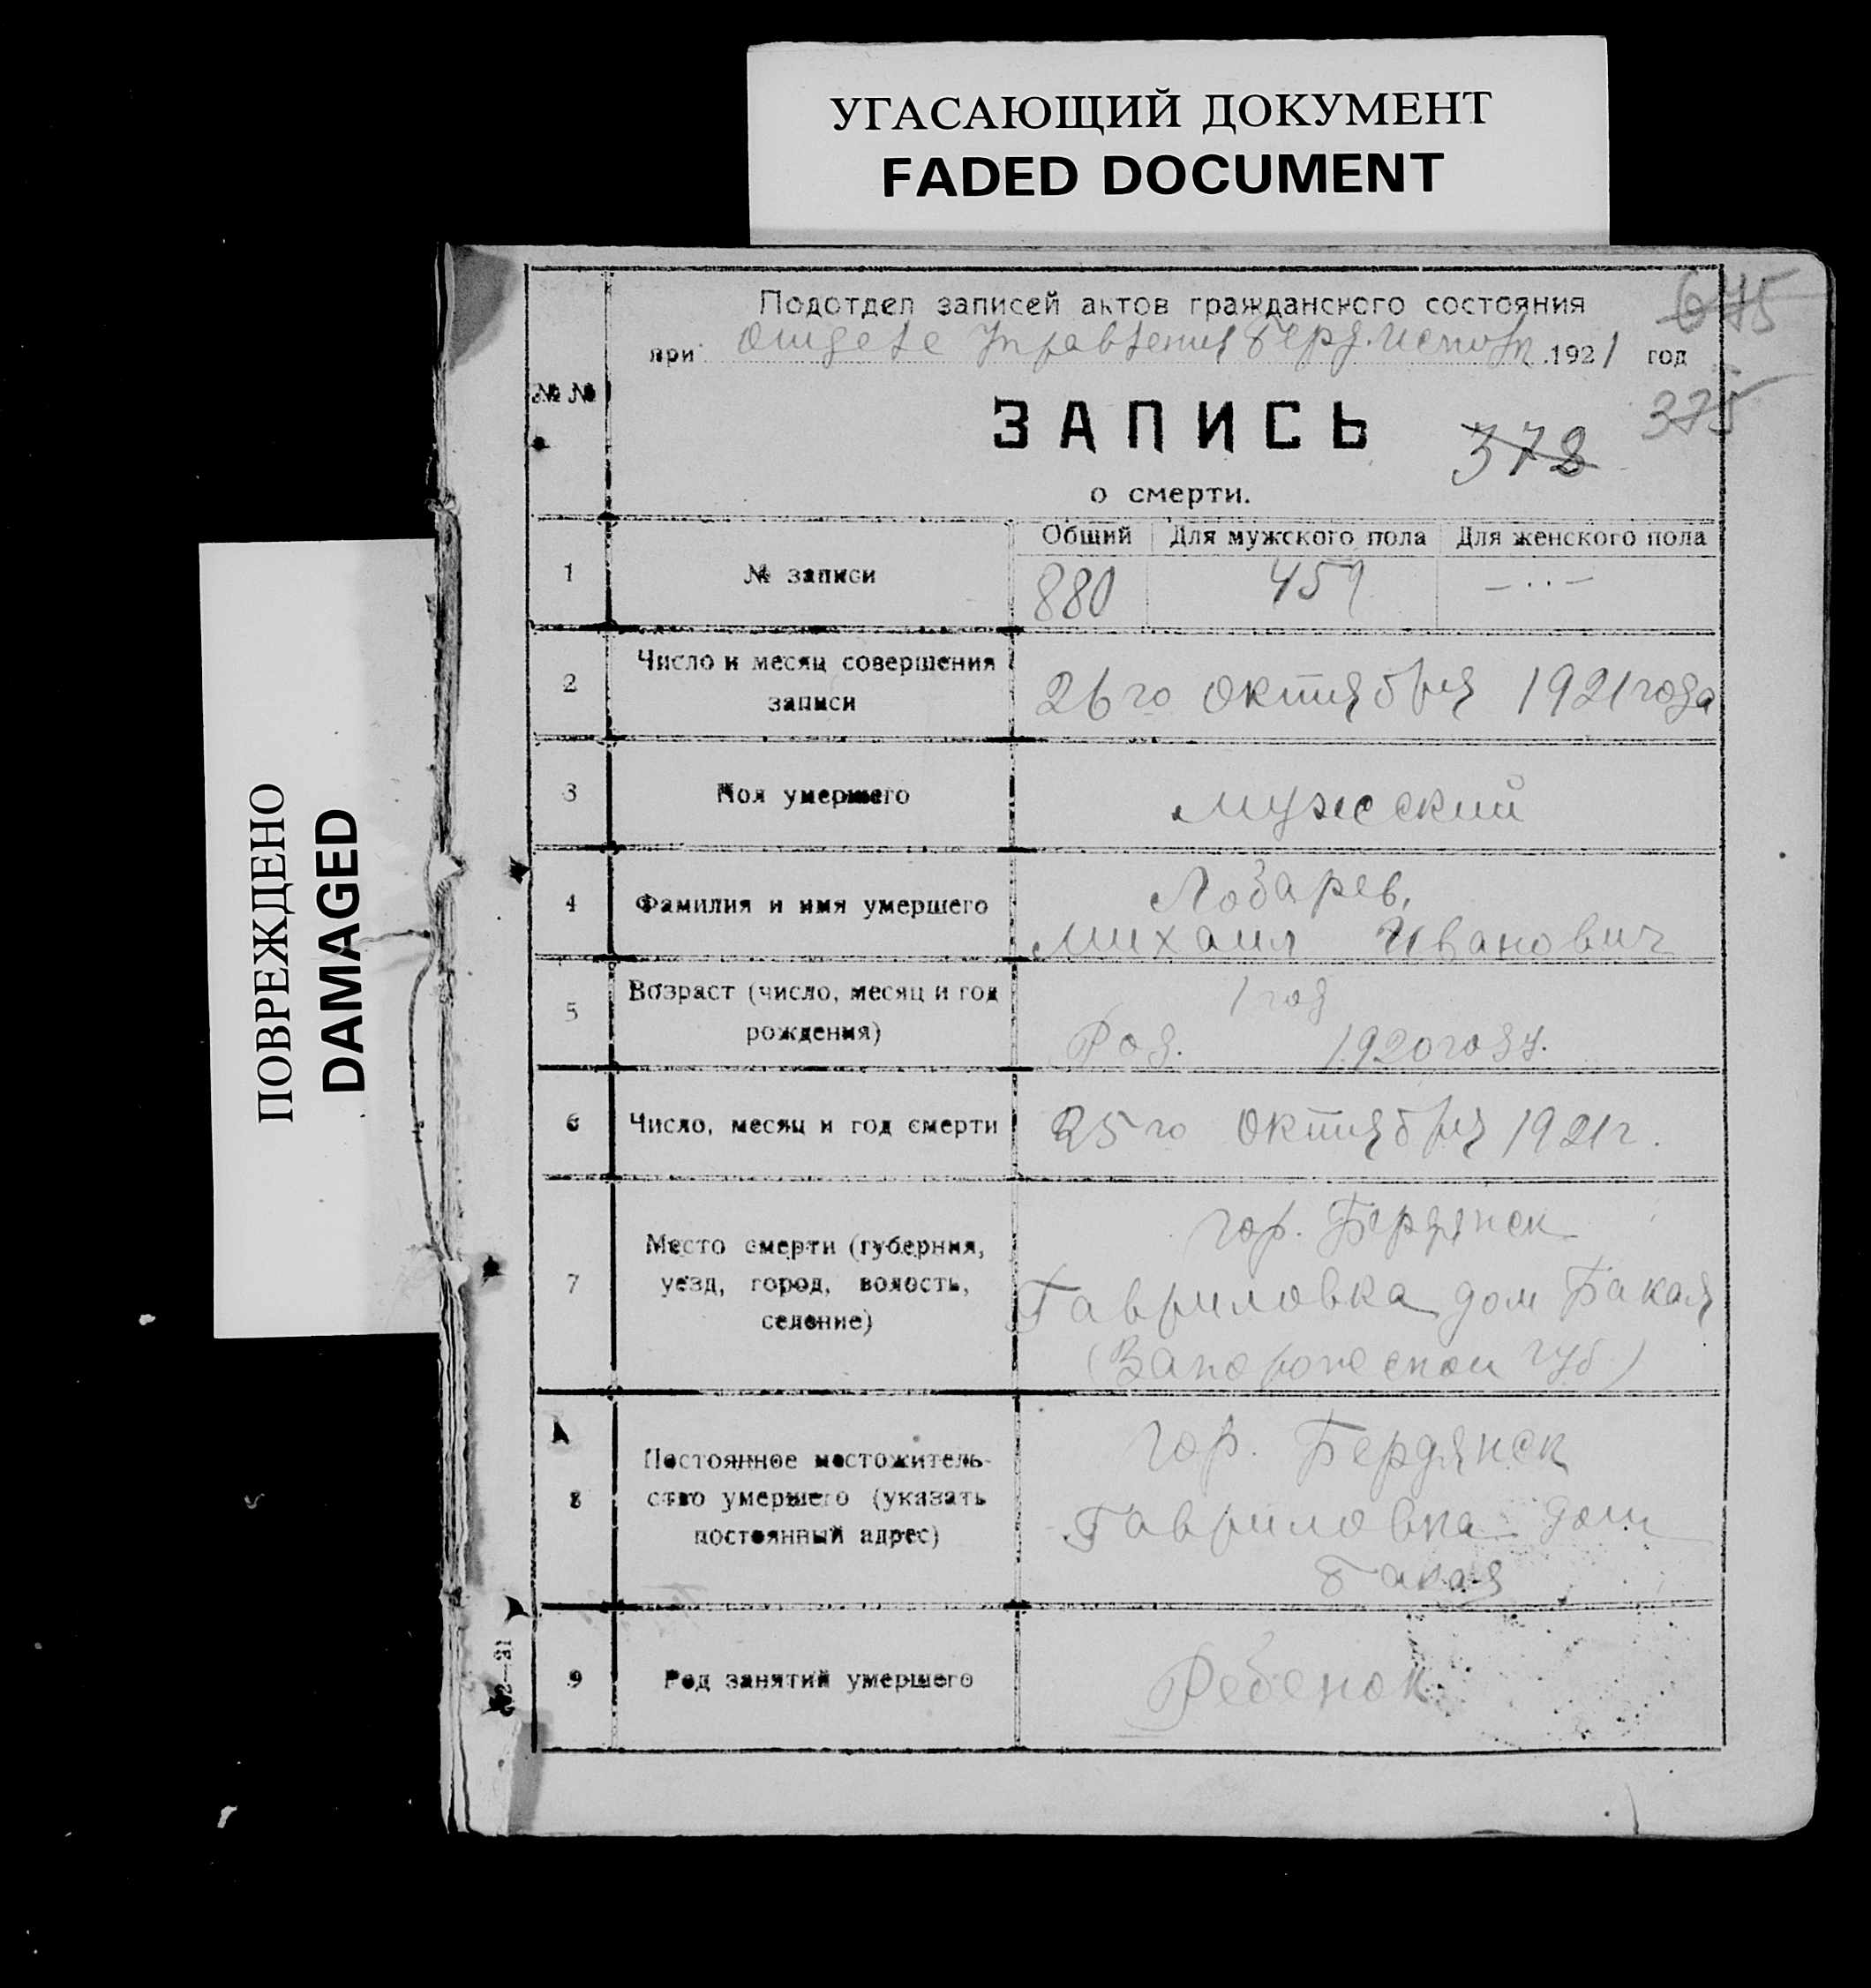 УГАСАЮЩИЙ ДОКУМЕНТ
FADED DOCUMENT
ПОВРЕЖДЕНО
DAMAGED
675
Подотдел записей актов гражданского состояния
при Отделе Управления Берд. Исполк .1921 год
375
№ №
ЗАПИСЬ
378
о смерти.
Общий Для мужского пола Для женского пола
1 № записи 880 459 — ·· —
2 Число и месяц совершения
записи
26го октября 1921 года
3 Пол умершего мужеский
4 Фамилия и имя умершего
Лозарев,
Михаил Иванович
5 Возраст (число, месяц и год
рождения)
1 год
Род. 1920 году.
6 Число, месяц и год смерти 25го октября 1921 г.
7 Место смерти (губерния,
уезд, город, волость,
селение)
гор. Бердянск
Гавриловка дом Бакая
(Запорожской губ)
8 Постоянное местожитель-
ство умершего (указать
постоянный адрес)
гор. Бердянск
Гавриловка дом
Бакая
9 Род занятий умершего Ребенок